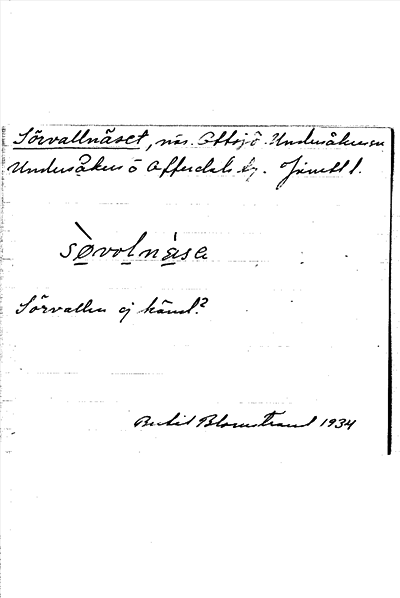 Sörvallnäset, näs. Ottsjö Undersåkers sn
Undersåkers o Offerdals tg. Jämtl l.
sòvolnàsa
Sörvallen ej känd?
Bertil Blomstrand 1934